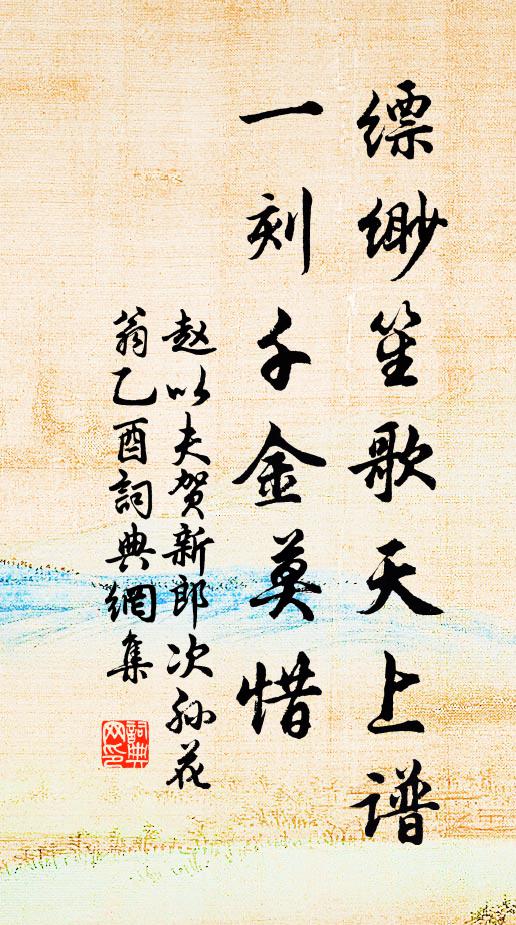 缥缈笙歌天上谱
一刻千金莫惜
赵以夫贺新郎次孙花
翁乙酉詞典網集
詞典网印